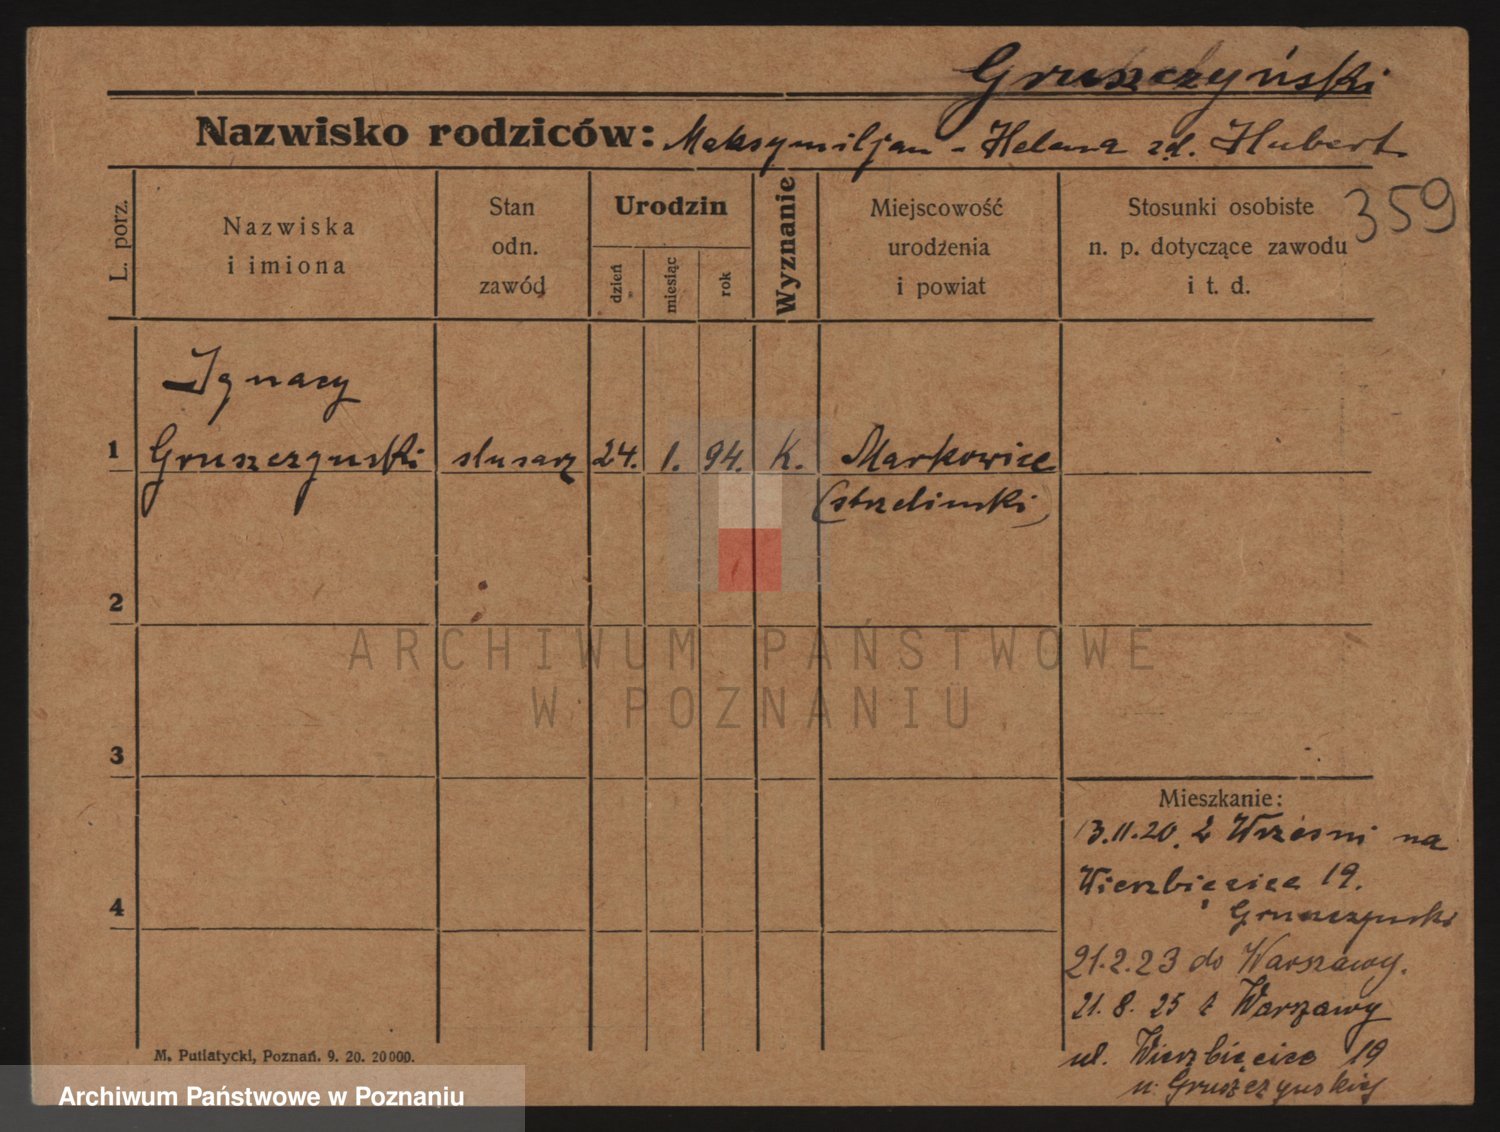 Gruszczyński
Nazwisko rodziców: Maksymiljan - Helena zd. Hubert
359
L. porz.
Nazwiska
i imiona
Stan
odn.
zawód
Urodzin
dzień
miesiąc
rok
Wyznanie
Miejscowość
urodzenia
i powiat
Stosunki osobiste
n. p. dotyczące zawodu
i t. d.
Ignacy
1 Gruszczynski slusarz 24. 1. 94. K. Markowice
(strzelinski)
2
ARCHIWUM PAŃSTWOWE
W POZNANIU
3
Mieszkanie:
13.11.20. z Wrześni na
Wierzbięcice 19.
Gruszczynski
4
21.2.23 do Warszawy.
21.8.25 z Warszawy
ul. Wierzbięcice 19
u. Gruszczynskiej
M. Putiatycki, Poznań. 9. 20. 20000.
Archiwum Państwowe w Poznaniu